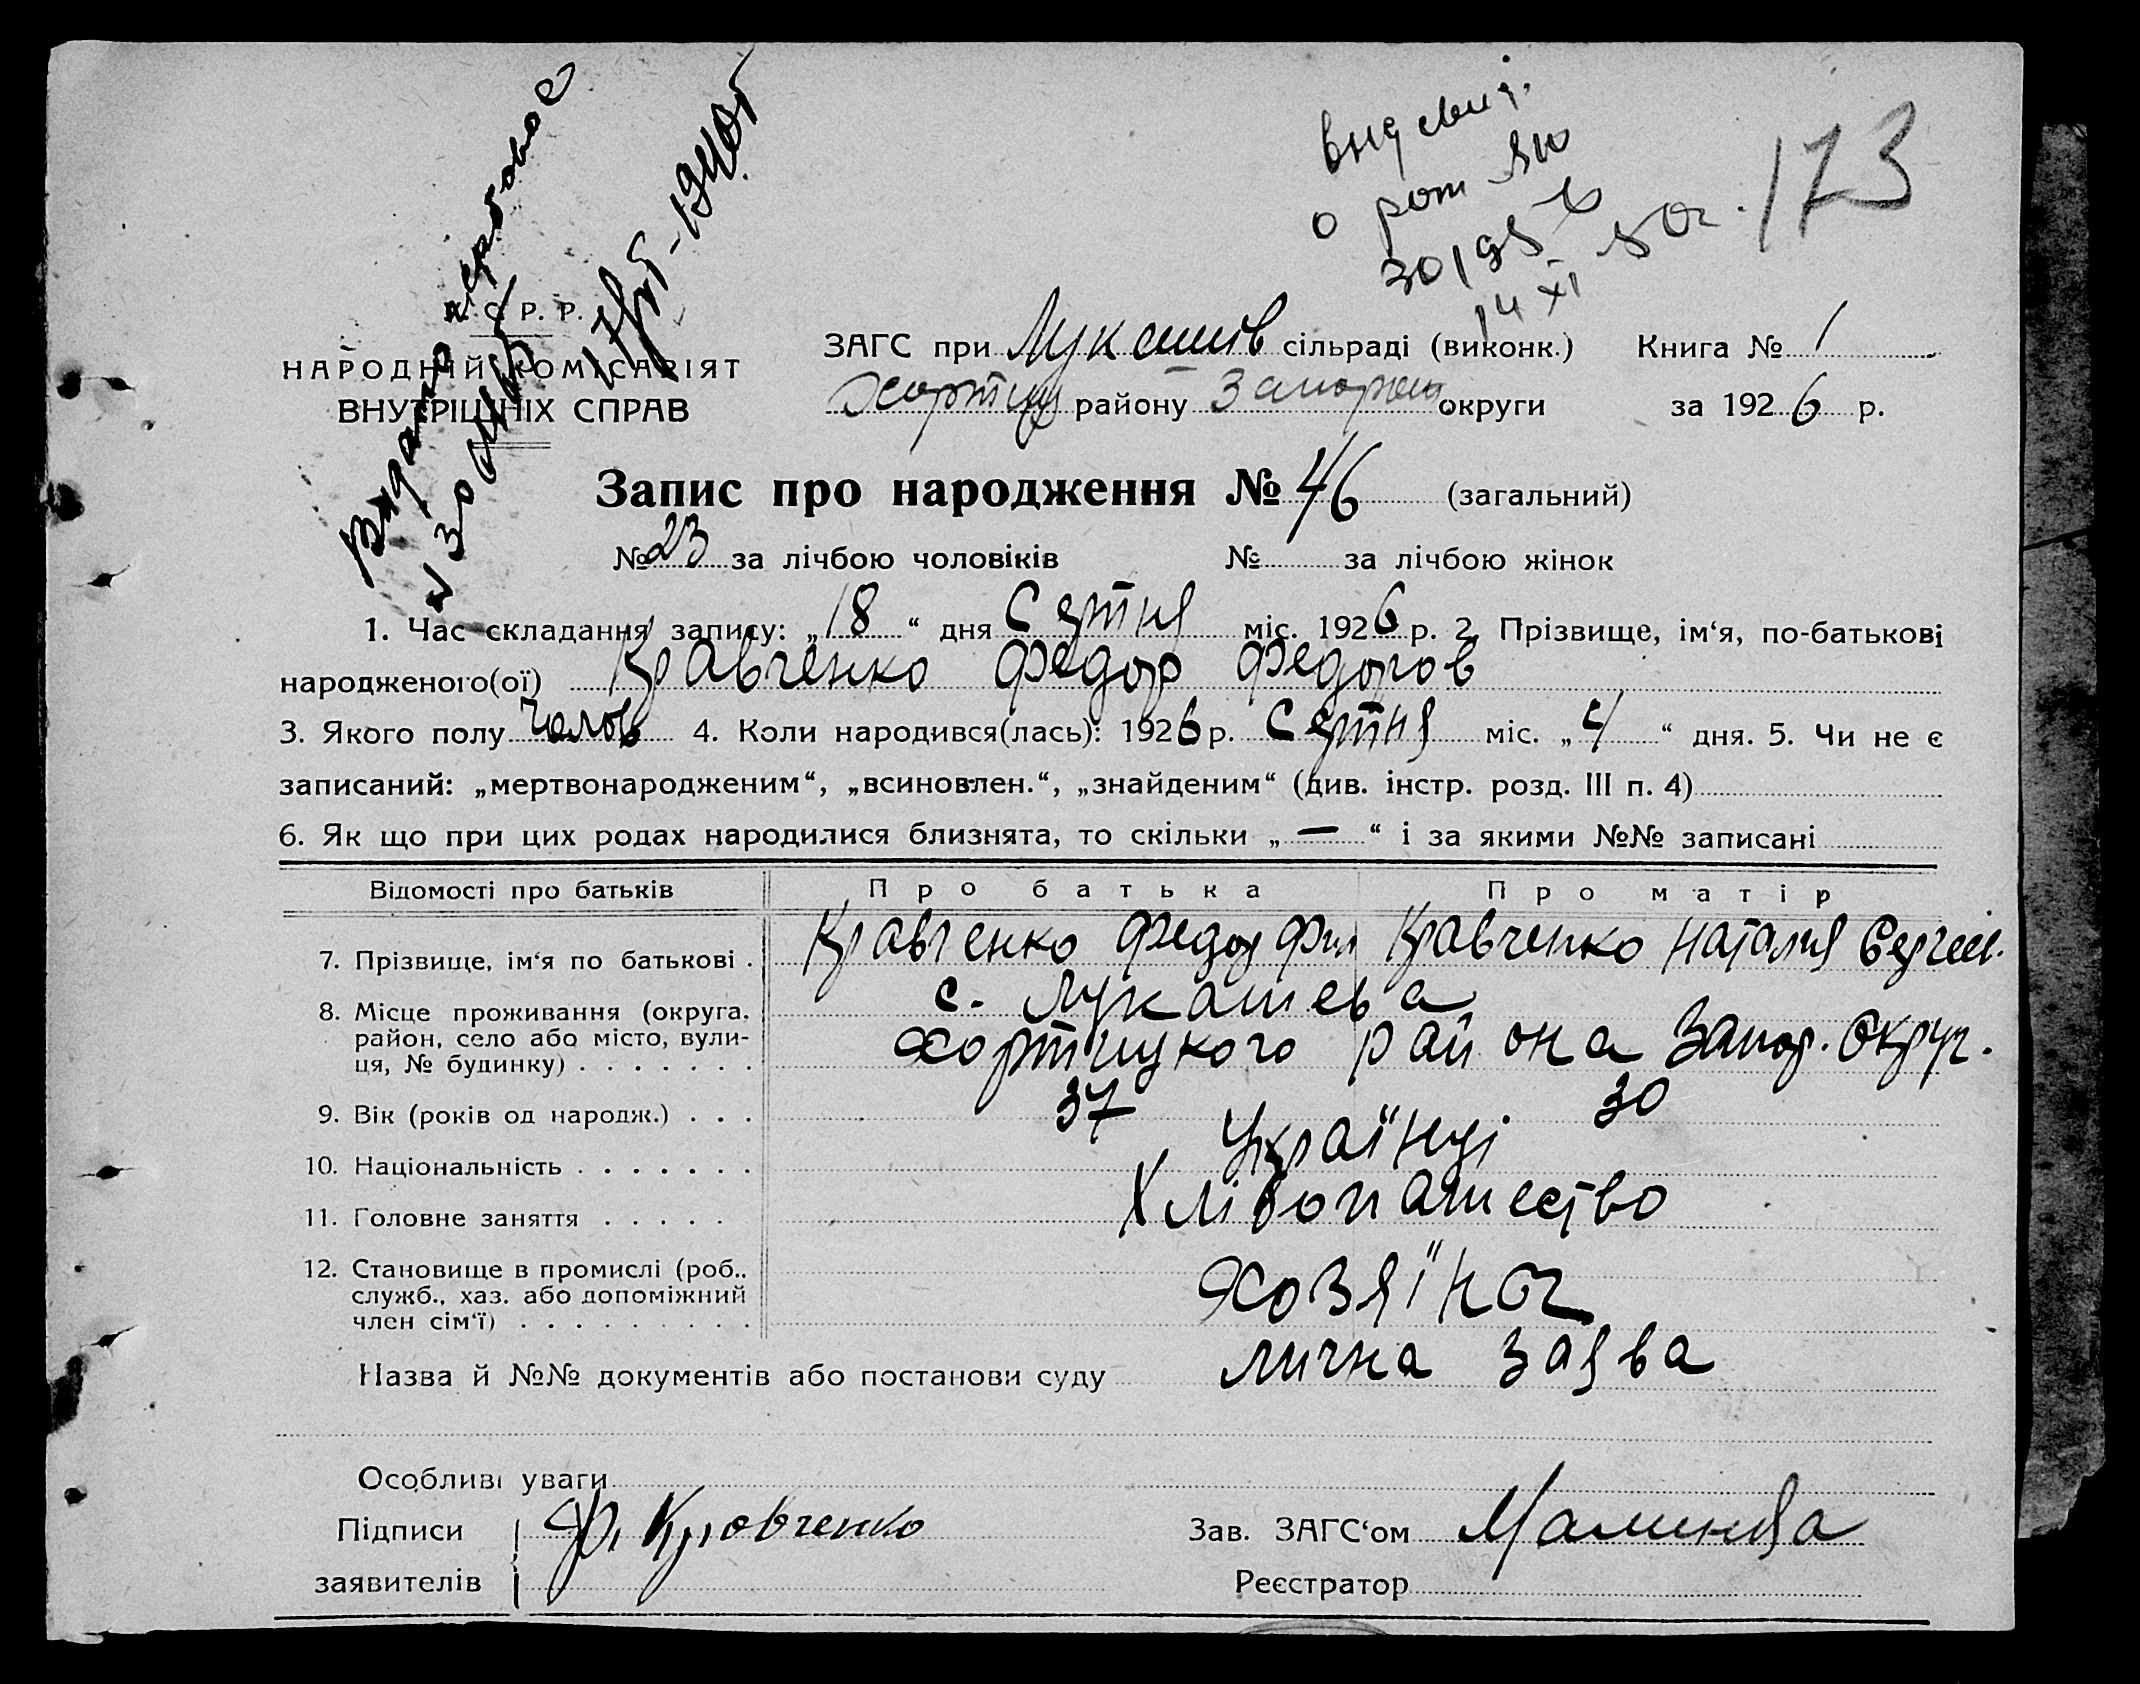 видано
выд свид.
о рож
30195
14 XI 50г.
173
С. Р. Р.
НАРОДНІЙ КОМІСАРІЯТ
ВНУТРІШНІХ СПРАВ
ЗАГС при Лукашів сільраді (виконк.) Книга № 1
Хортиц району Запорож округи за 1926 р.
Запис про народження № 46 (загальний)
№ 23 за лічбою чоловіків № за лічбою жінок
1. Час складання запису: „18“ дня Серпня міс. 1926 р. 2. Прізвище, ім‘я, по-батькові
народженого(ої) Кравченко Федор Федоров
3. Якого полу Чолов 4. Коли народився(лась): 1926 р. Серпня міс. „4“ дня. 5. Чи не є
записаний: „мертвонародженим“, „всиновлен.“, „знайденим“ (див. інстр. розд. III п. 4)
6. Як що при цих родах народилися близнята, то скільки „—“ і за якими №№ записані
Відомості про батьків Про батька Про матір
7. Прізвище, ім‘я по батькові . Кравченко Федор Фил Кравченко Наталия Сергеев.
8. Місце проживання (округа, район, село або місто, вули-ця, № будинку) . . . . . . . с. Лукашева
Хортицкого района Запор. Округ.
9. Вік (років од народж.) . . . 37 30
10. Національність . . . . . . . Українці
11. Головне заняття . . . . . Хлібопашество
12. Становище в промислі (роб., служб., хаз. або допоміжний член сім‘ї) . . . . . . . . . Хозяїн
Назва й №№ документів або постанови суду лична заява
Особливі уваги
Підписи Ф. Кравченко Зав. ЗАГС‘ом
заявителів Реєстратор